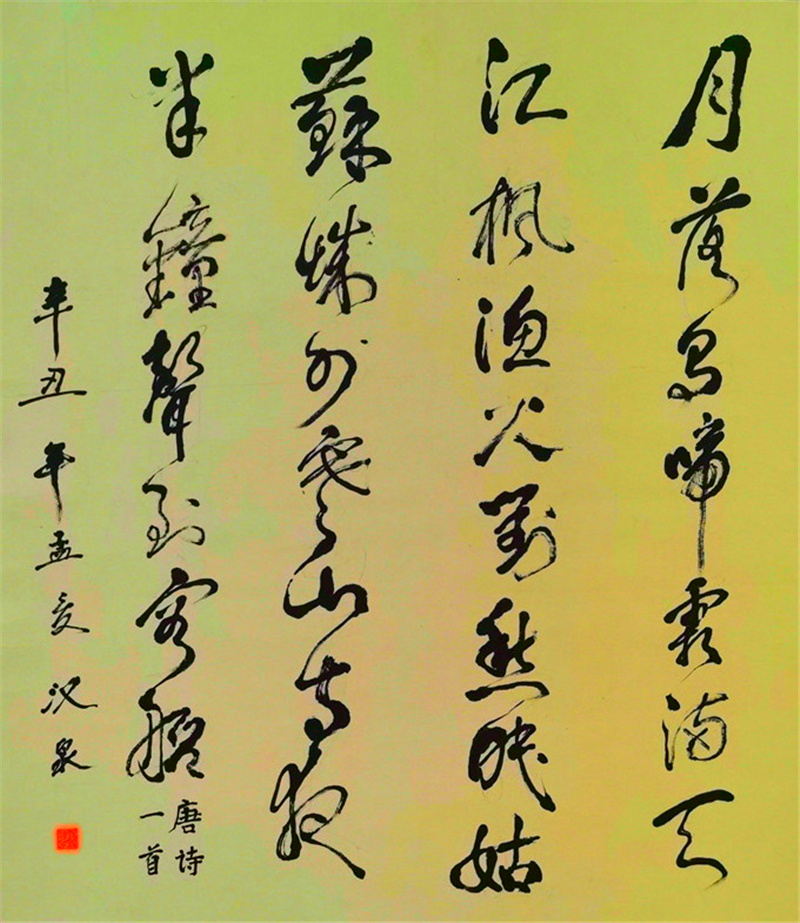 月落烏啼霜满天
江楓渔火對愁眠姑
蘇城外寒山寺夜
半鐘聲到客船
唐诗
一首
辛丑年孟夏汉泉